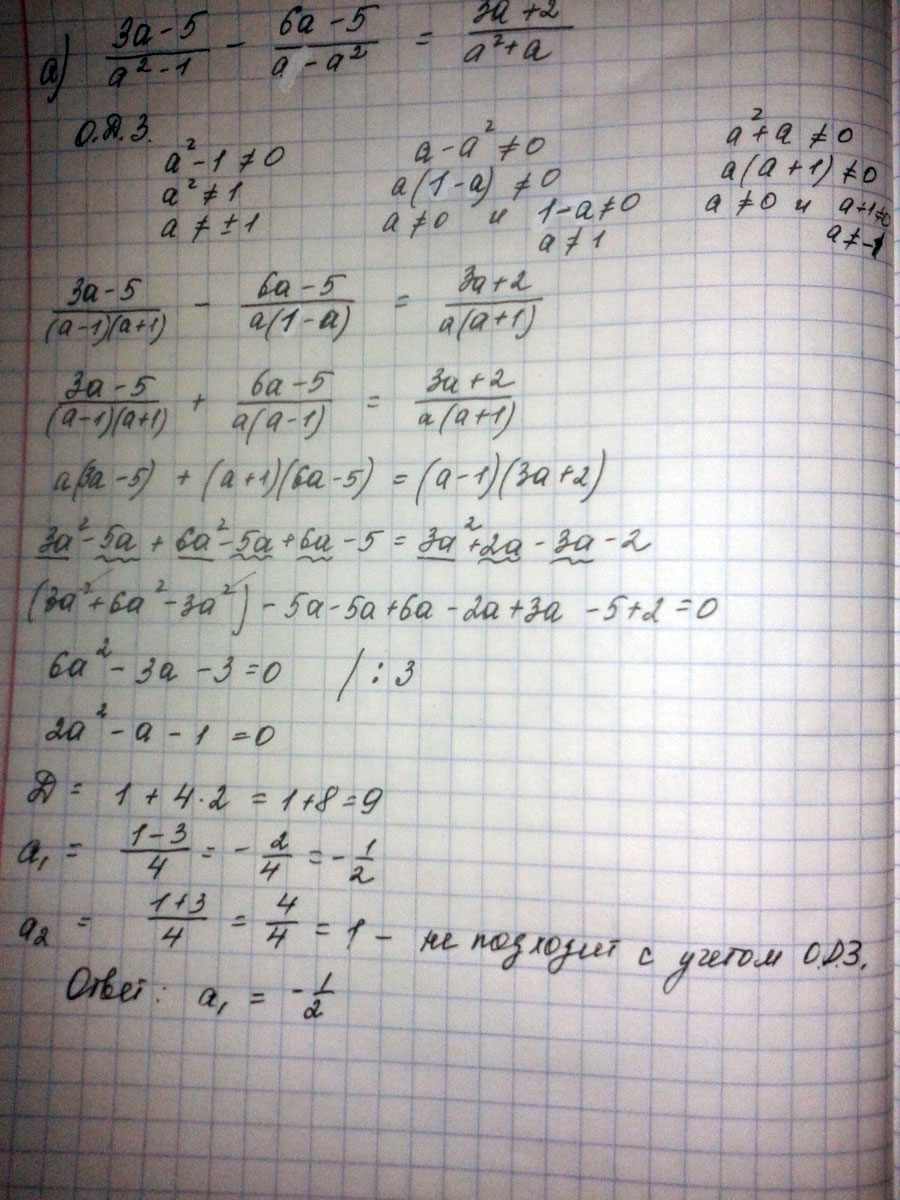 а) (3a-5)/(a²-1) - (6a-5)/(a-a²) = (3a+2)/(a²+a)
О.Д.З.
a²-1≠0    a-a²≠0    a²+a≠0
a²≠1    a(1-a)≠0    a(a+1)≠0
a≠±1    a≠0 и 1-a≠0    a≠0 и a+1≠0
a≠1    a≠-1
(3a-5)/((a-1)(a+1)) - (6a-5)/(a(1-a)) = (3a+2)/(a(a+1))
(3a-5)/((a-1)(a+1)) + (6a-5)/(a(a-1)) = (3a+2)/(a(a+1))
a(3a-5) + (a+1)(6a-5) = (a-1)(3a+2)
3a²-5a+6a²-5a+6a-5 = 3a²+2a-3a-2
(3a²+6a²-3a²)-5a-5a+6a-2a+3a-5+2=0
6a²-3a-3=0 /:3
2a²-a-1=0
Д = 1+4·2 = 1+8=9
a₁ = (1-3)/4 = -2/4 = -1/2
a₂ = (1+3)/4 = 4/4 = 1 - не подходит с учетом О.Д.З.
Ответ: a₁ = -1/2